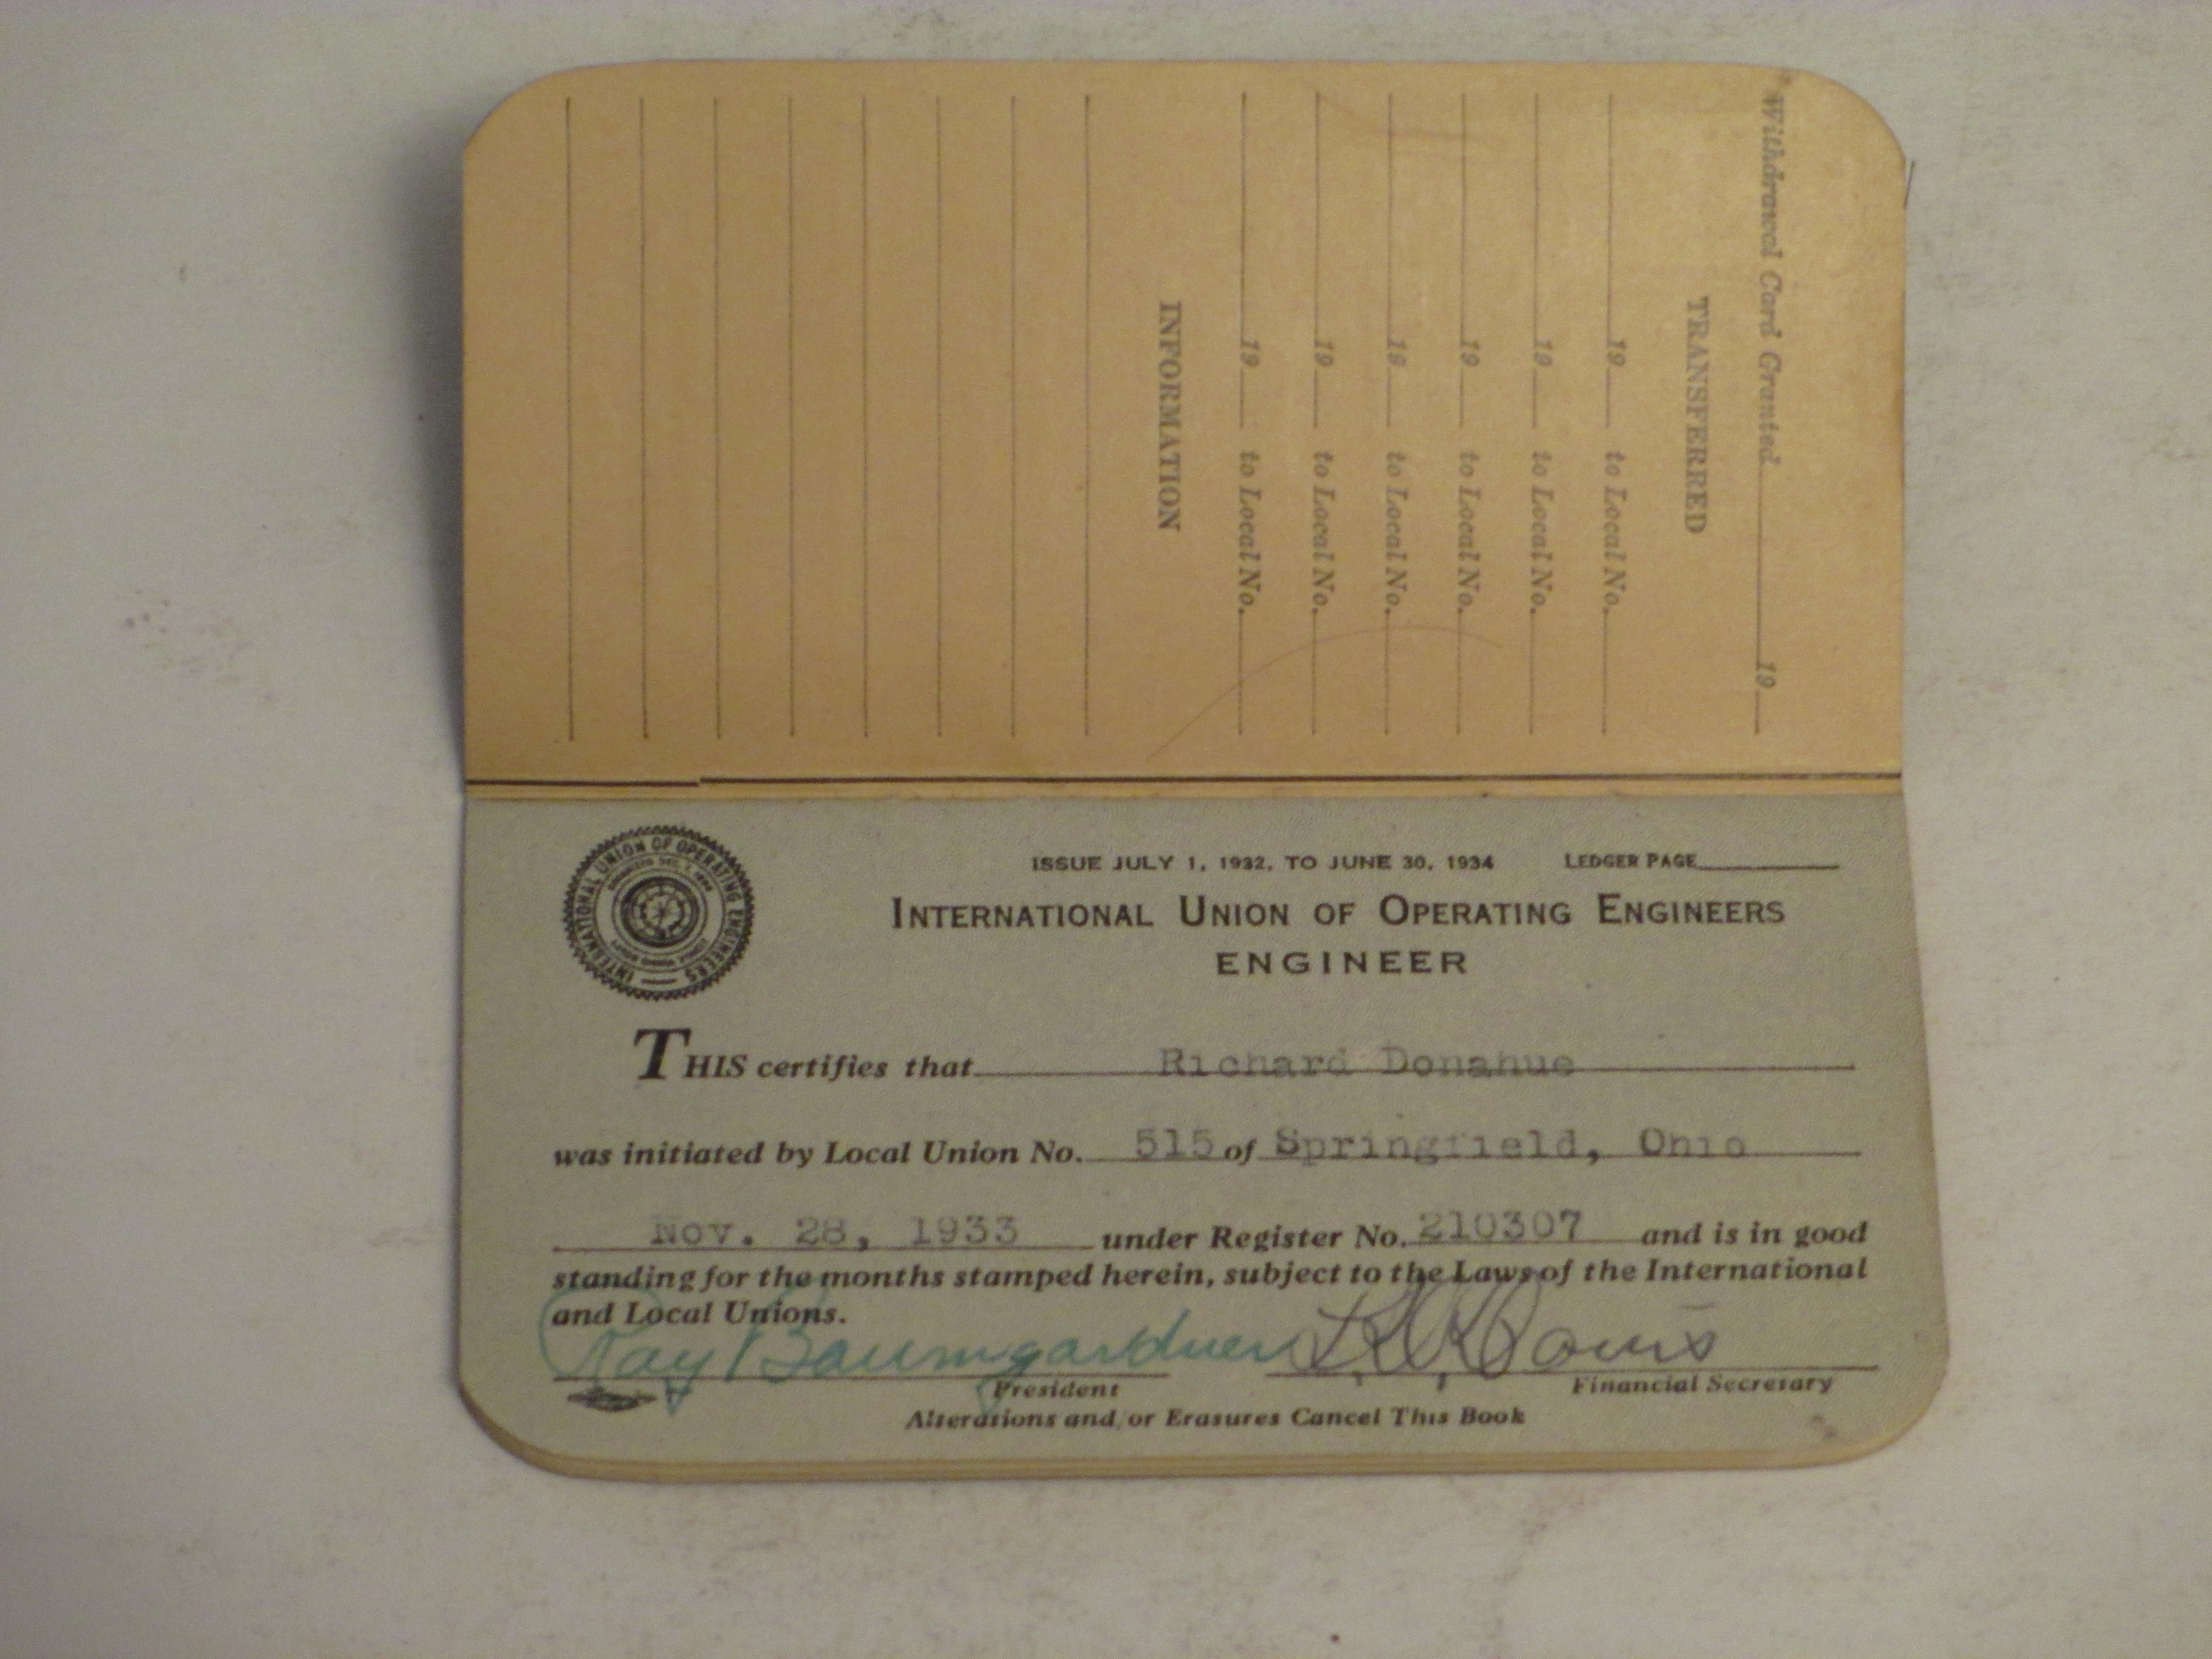 Withdrawal Card Granted 19
TRANSFERRED
19 to Local No.
19 to Local No.
19 to Local No.
19 to Local No.
19 to Local No.
19 to Local No.
INFORMATION
INTERNATIONAL UNION OF OPERATING ENGINEERS
ISSUE JULY 1, 1932, TO JUNE 30, 1934 LEDGER PAGE
INTERNATIONAL UNION OF OPERATING ENGINEERS
ENGINEER
THIS certifies that Richard Donahue
was initiated by Local Union No. 515 of Springfield, Ohio
Nov. 28, 1933 under Register No. 210307 and is in good
standing for the months stamped herein, subject to the Laws of the International
and Local Unions.
Ray Baumgardner
President Financial Secretary
Alterations and/or Erasures Cancel This Book